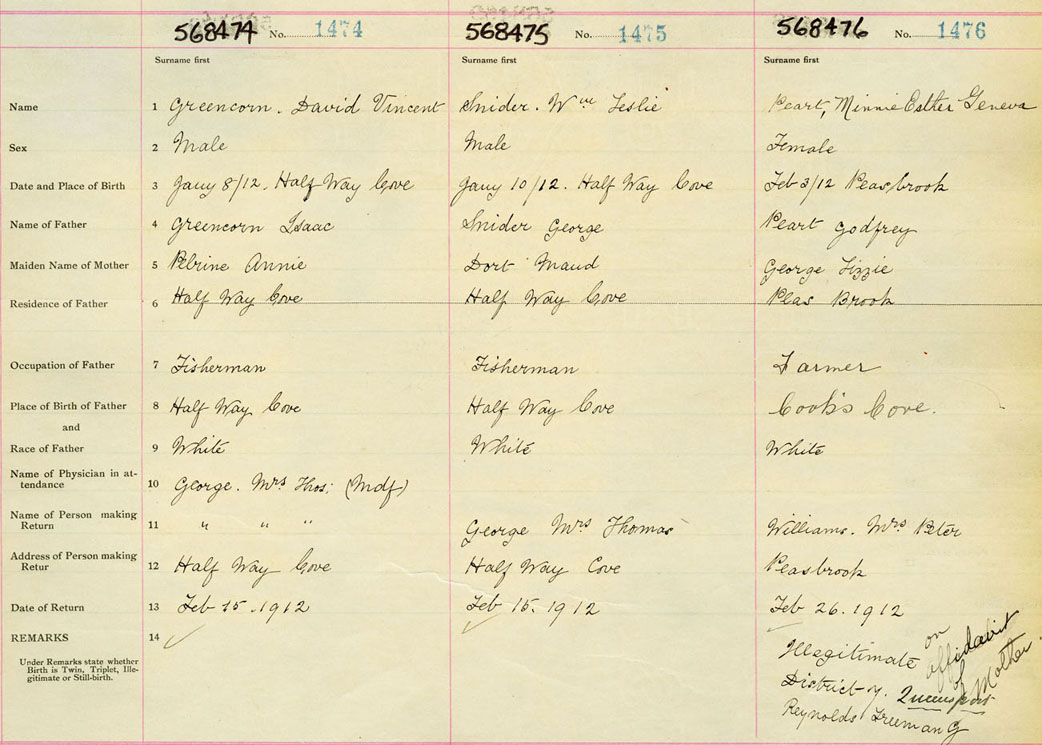 568474 No. 1474 568475 No. 1475 568476 No. 1476
Surname first Surname first Surname first
Name 1 Greencorn. David Vincent Snider. Wm Leslie Peart, Minnie Esther Geneva
Sex 2 Male Male Female
Date and Place of Birth 3 Jany 8/12. Half Way Cove Jany 10/12. Half Way Cove Feb 3/12 Peasbrook
Name of Father 4 Greencorn Isaac Snider George Peart Godfrey
Maiden Name of Mother 5 Pelrine Annie Dort Maud George Lizzie
Residence of Father 6 Half Way Cove Half Way Cove Peas Brook
Occupation of Father 7 Fisherman Fisherman Farmer
Place of Birth of Father 8 Half Way Cove Half Way Cove Cook's Cove.
and
Race of Father 9 White White White
Name of Physician in at-
tendance 10 George. Mrs Thos; (Mdf)
Name of Person making
Return 11 " " " George Mrs Thomas Williams. Mrs Peter
Address of Person making
Retur 12 Half Way Cove Half Way Cove Peasbrook
Date of Return 13 Feb 15. 1912 Feb 15. 1912 Feb 26. 1912
REMARKS 14
Under Remarks state whether
Birth is Twin, Triplet, Ille-
gitimate or Still-birth.
Illegitimate on
affidavit
of
Mother
District of Queensport
Reynolds Freeman G